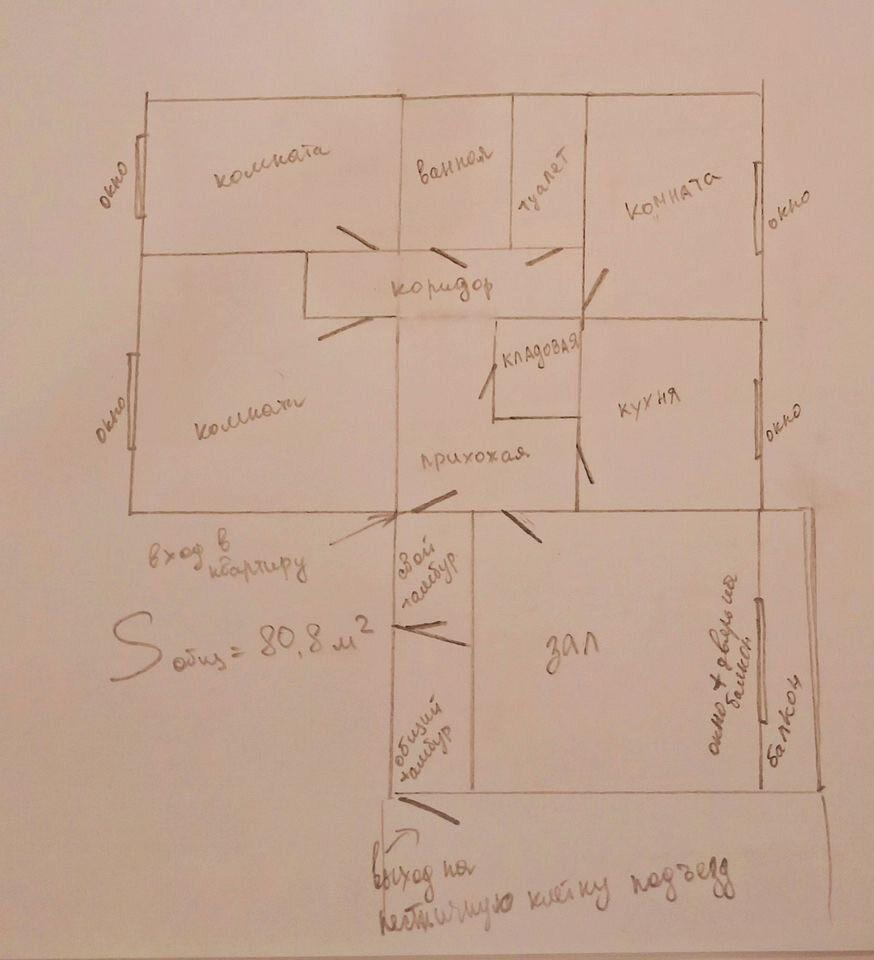 комната
ванная
туалет
комната
окно
окно
коридор
кладовая
окно
комната
кухня
окно
прихожая
вход в
квартиру
свой
тамбур
Sобщ = 80,8 м²
зал
окно + дверь на
балкон
балкон
общий
тамбур
выход на
лестничную клетку подъезд